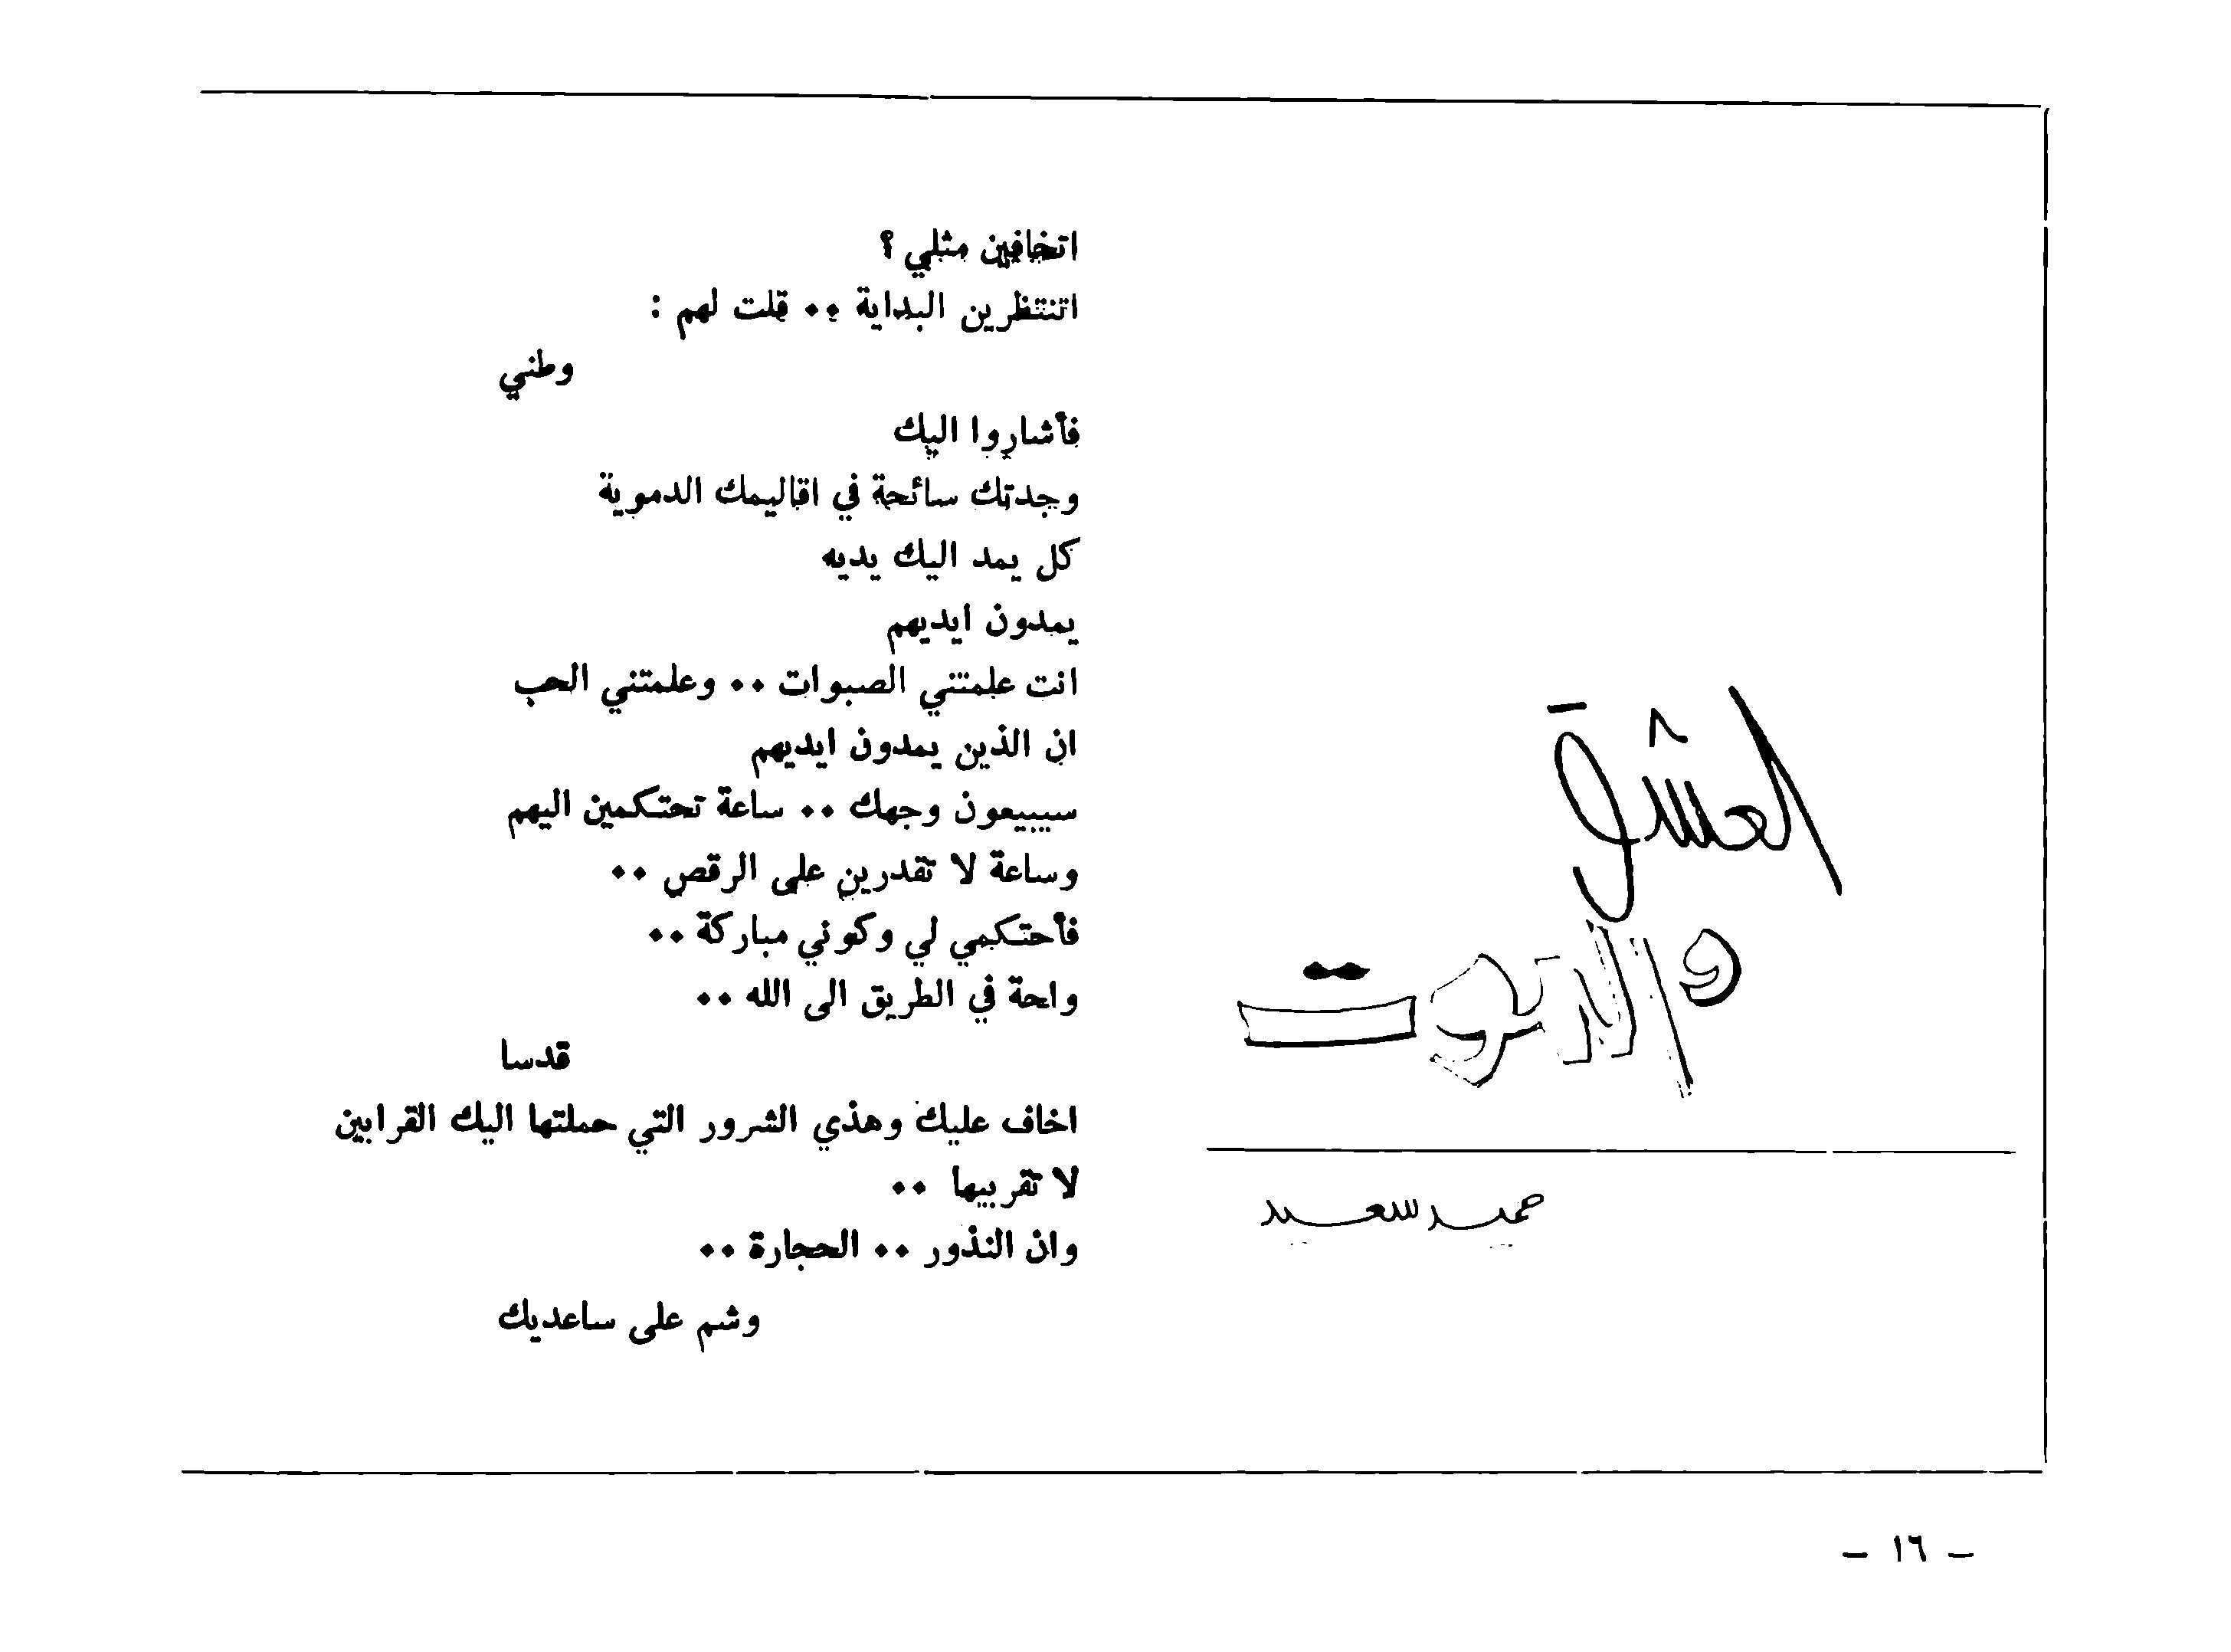 العشق
والموت
حميد سعيد
اتخافين مثلي ؟
اتنتظرين البداية •• قلت لهم :
وطني
فأشاروا اليك
وجدتك سائحة في اقاليمك الدموية
كل يمد اليك يديه
يمدون ايديهم
انت علمتني الصبوات •• وعلمتني الحب
ان الذين يمدون ايديهم
سيبيعون وجهك •• ساعة تحتكمين اليهم
وساعة لا تقدرين على الرقص ••
فأحتكمي لي وكوني مباركة ••
واحة في الطريق الى الله ••
قدسا
اخاف عليك وهذي الشرور التي حملتها اليك القرابين
لا تقربيها ••
وان النذور •• الحجارة ••
وشم على ساعديك
– ١٦ –